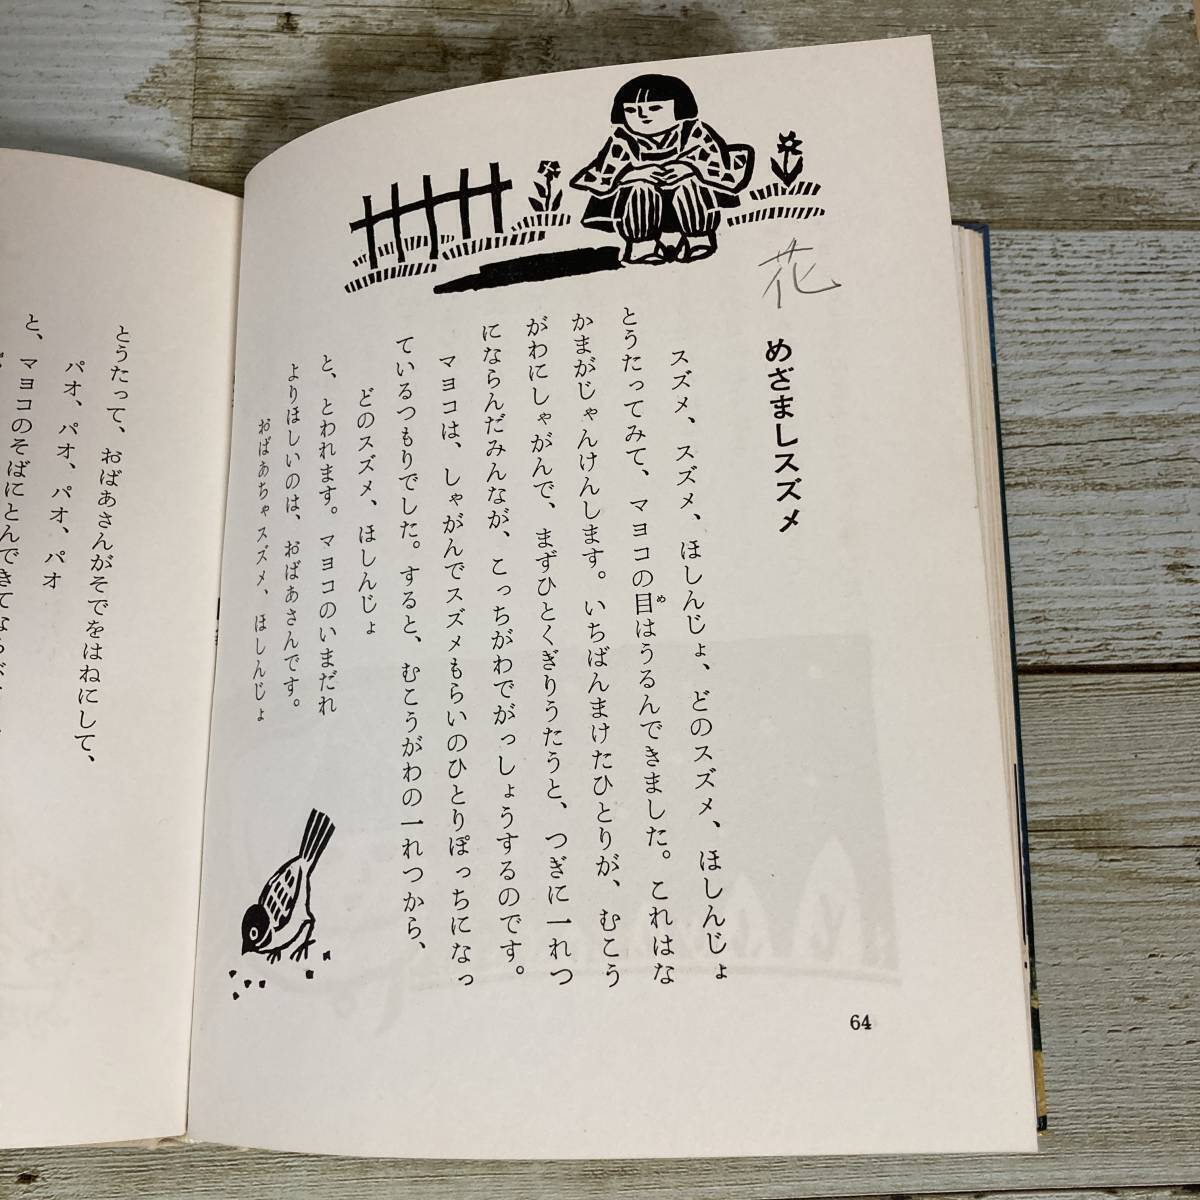 花
めざましスズメ
スズメ、スズメ、ほしんじょ、どのスズメ、ほしんじょ
とうたってみて、マヨコの目はうるんできました。これはな
め
かまがじゃんけんします。いちばんまけたひとりが、むこう
がわにしゃがんで、まずひとくぎりうたうと、つぎに一れつ
にならんだみんなが、こっちがわでがっしょうするのです。
マヨコは、しゃがんでスズメもらいのひとりぽっちになっ
ているつもりでした。すると、むこうがわの一れつから、
どのスズメ、ほしんじょ
と、とわれます。マヨコのいまだれ
よりほしいのは、おばあさんです。
おばあちゃスズメ、ほしんじょ
64
とうたって、おばあさんがそでをはねにして、
パオ、パオ、パオ、パオ
と、マヨコのそばにとんできてならび